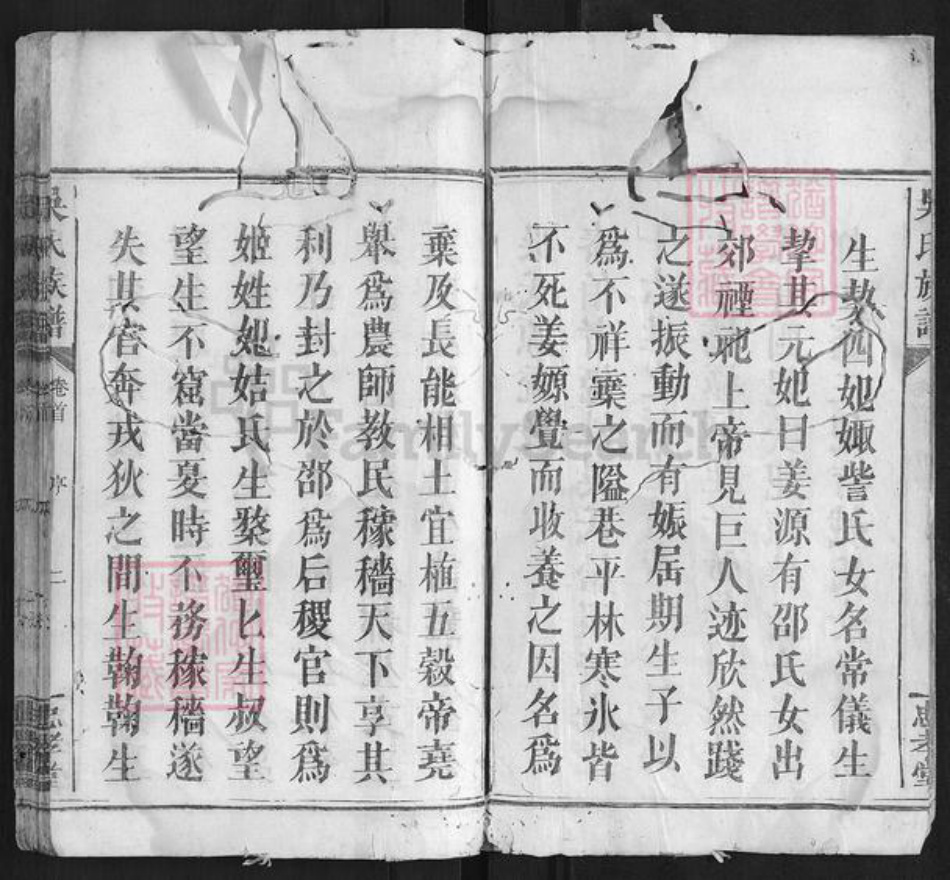 吳氏族譜
忠孝堂
生契四妃娵訾氏女名常儀生
摯其元妃曰姜源有邰氏女出
郊禋祀上帝見巨人迹欣然踐
之遂振動而有娠屆期生子以
爲不祥棄之隘巷平林寒氷皆
不死姜嫄覺而收養之因名爲
棄及長能相土宜植五穀帝堯
舉爲農師教民稼穡天下享其
利乃封之於邰爲后稷官則爲
姬姓妃姞氏生漦璽匕生叔望
望生不窋當夏時不務稼穡遂
失其官奔戎狄之間生鞠鞠生
吳氏族譜
卷首
序
二
忠孝堂
FamilySearch